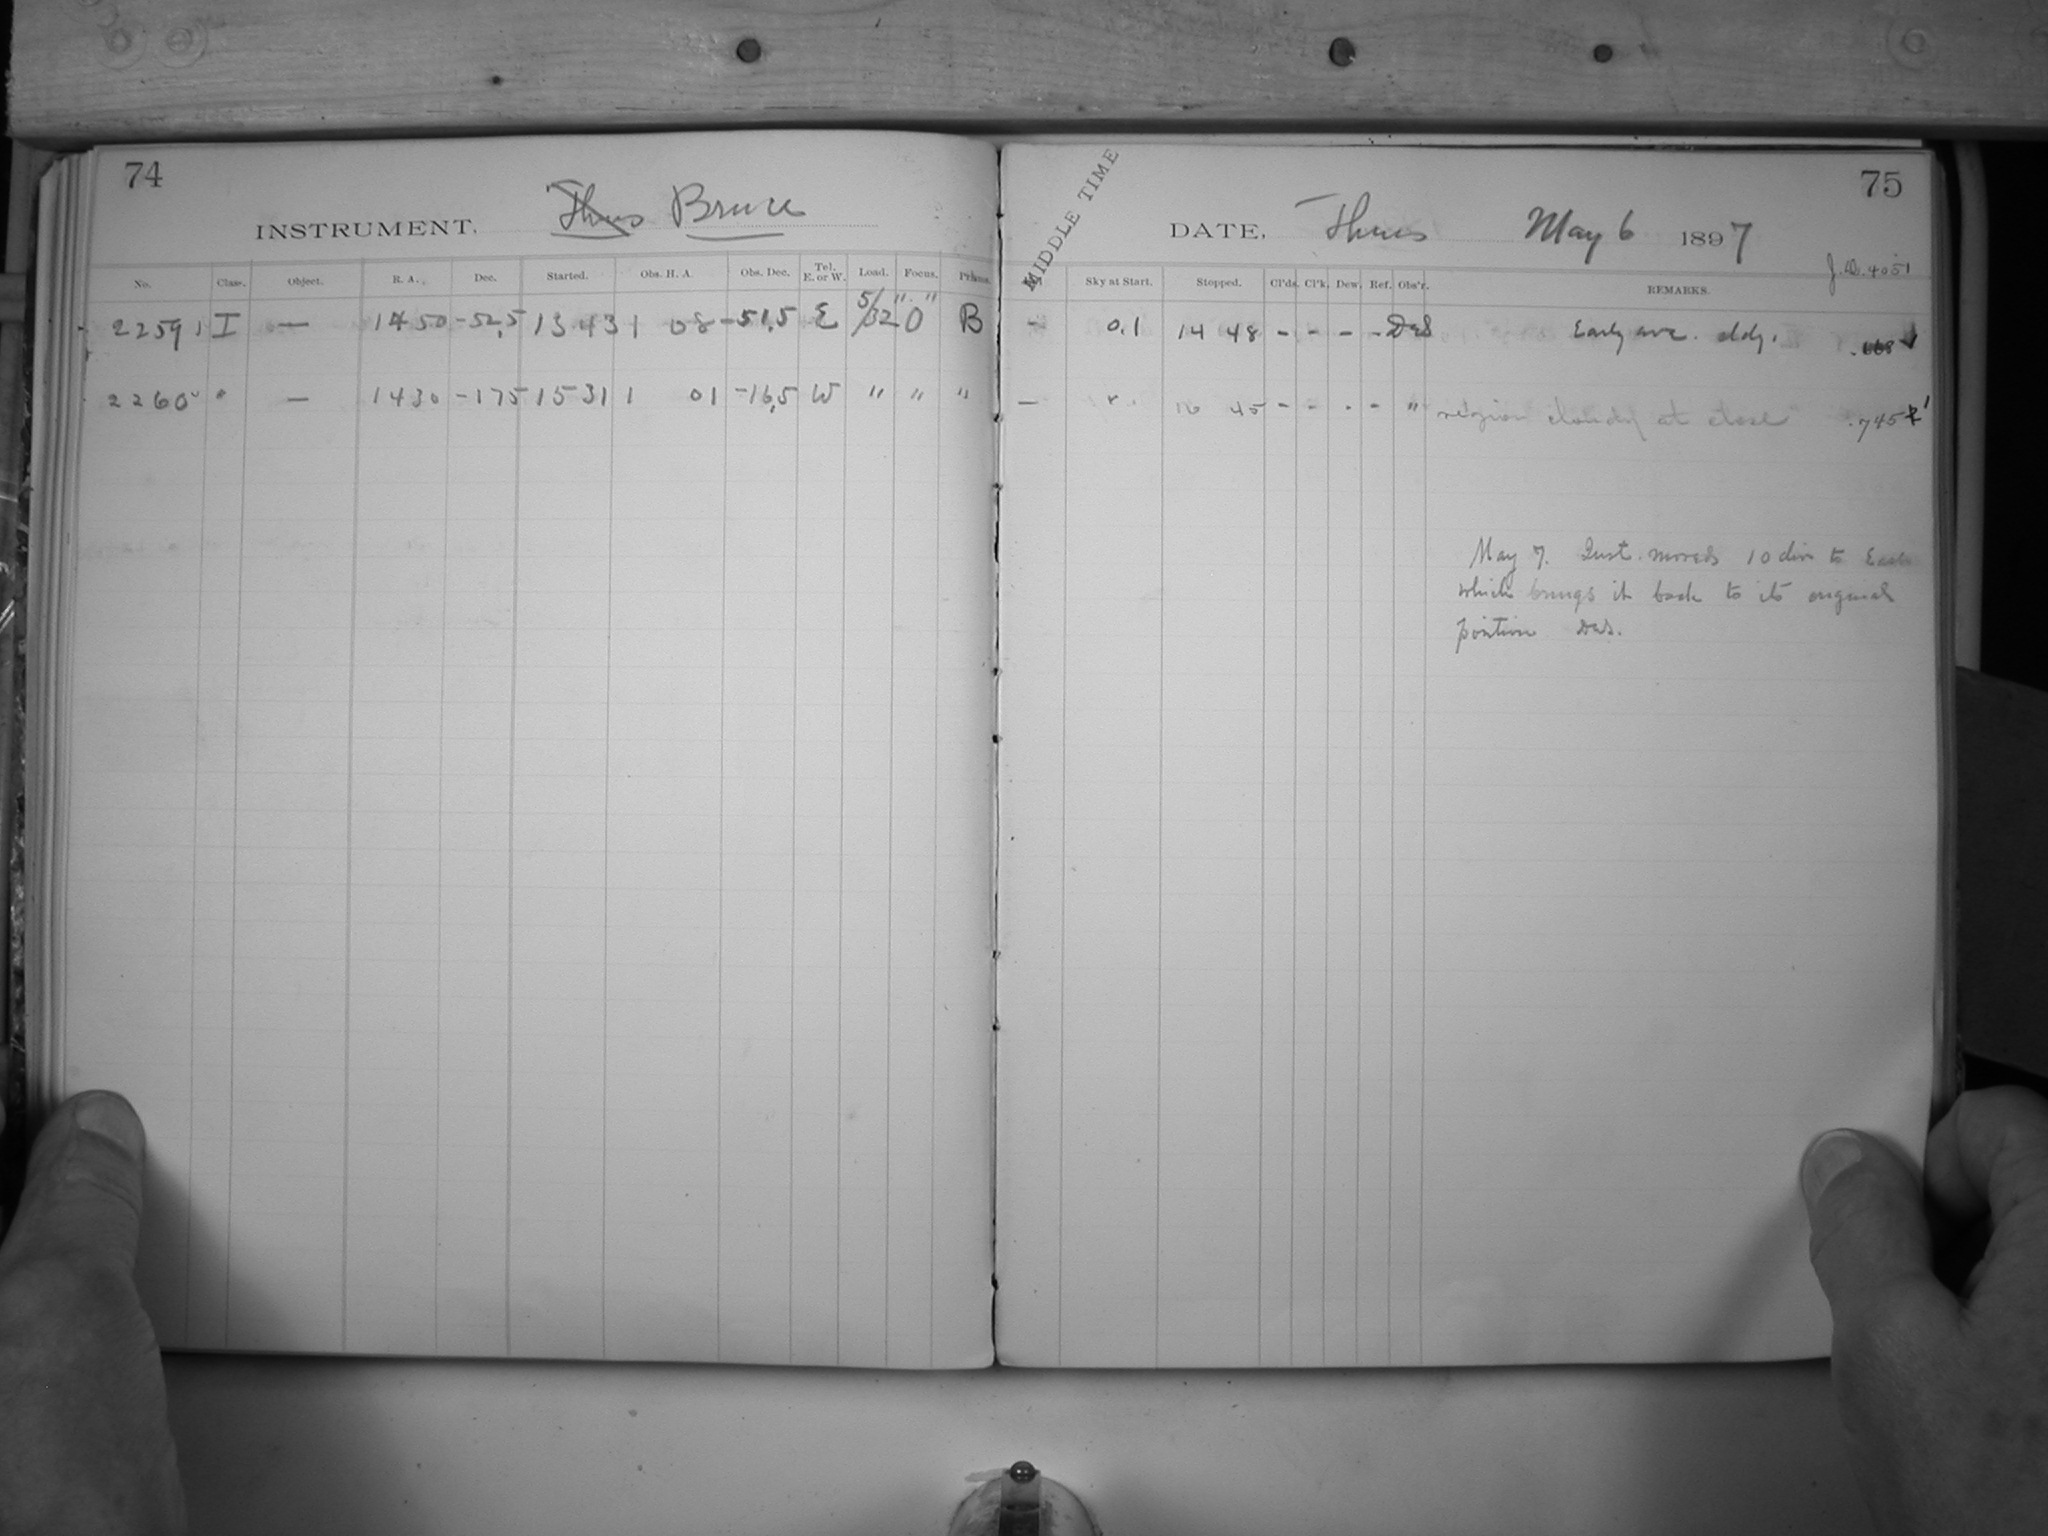 74
INSTRUMENT. Thurs Bruce
No. Class. Object. R. A. Dec. Started. Obs. H. A. Obs. Dec. Tel. E. or W. Load. Focus. Prisms.
2259 I — 14 50 -52.5 13 43 1 08 -51.5 E 5/32 " 0 " B
2260 " — 14 30 -17.5 15 31 1 01 -16.5 W " " "
75
MIDDLE TIME
DATE, Thurs May 6 1897
J.D. 4051
Sky at Start. Stopped. Cl'ds. Cl'k. Dew. Ref. Obs'r. REMARKS.
- 0.1 14 48 - - - - DeS Early ave. cldy.
— " 16 45 - - - - " region cloudy at close .745
May 7. Inst. moved 10 div to East
which brings it back to its original
position DeS.